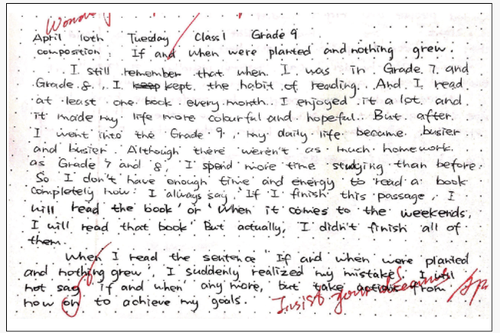 April 10th Tuesday Class1 Grade 9
composition: If and when were planted and nothing grew.
I still remember that when I was in Grade 7 and
Grade 8, I keep kept the habit of reading. And I read
at least one book every month. I enjoyed it a lot and
it made my life more colourful and hopeful. But after
I went into the Grade 9, my daily life became busier
and busier. Although there weren't as much homework
as Grade 7 and 8, I spend more time studying than before.
So I don't have enough time and energy to read a book
completely now. I always say "If I finish this passage, I
will read the book" or "When it comes to the weekends,
I will read that book". But actually, I didn't finish all of
them.
When I read the sentence "If and when were planted
and nothing grew", I suddenly realized my mistake. I will
not say "if and when" any more, but take actions from
now on to achieve my goals.
Insist your dreams